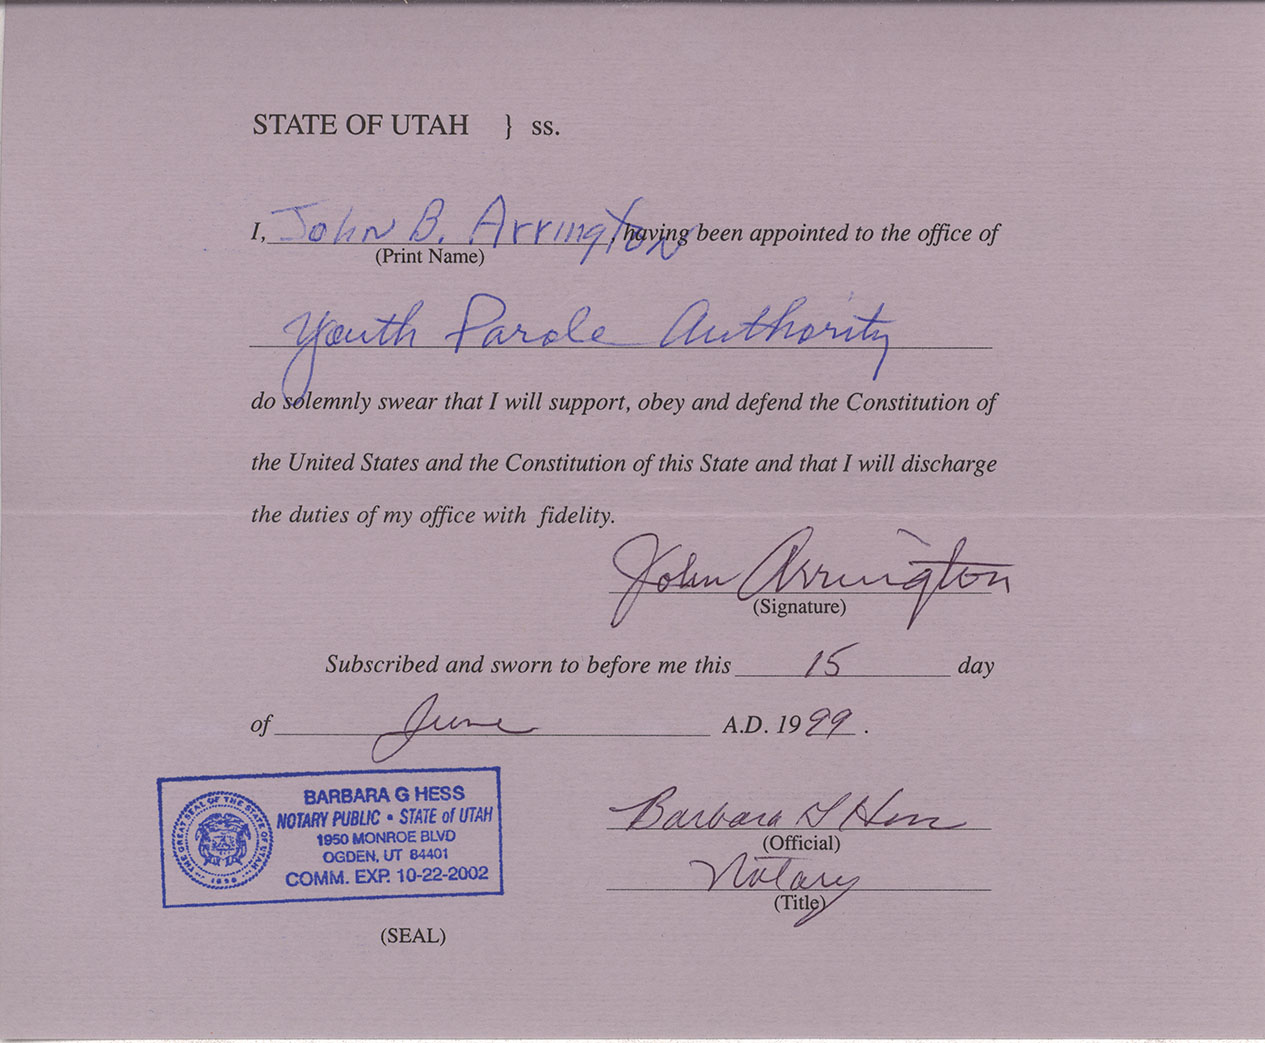 STATE OF UTAH } ss.
I, John B. Arrington, having been appointed to the office of
(Print Name)
Youth Parole Authority
do solemnly swear that I will support, obey and defend the Constitution of
the United States and the Constitution of this State and that I will discharge
the duties of my office with fidelity.
John Arrington
(Signature)
Subscribed and sworn to before me this 15 day
of June A.D. 1999.
BARBARA G HESS
NOTARY PUBLIC • STATE of UTAH
1950 MONROE BLVD
OGDEN, UT 84401
COMM. EXP. 10-22-2002
THE GREAT SEAL OF THE STATE OF UTAH
1896
Barbara G Hess
(Official)
Notary
(Title)
(SEAL)